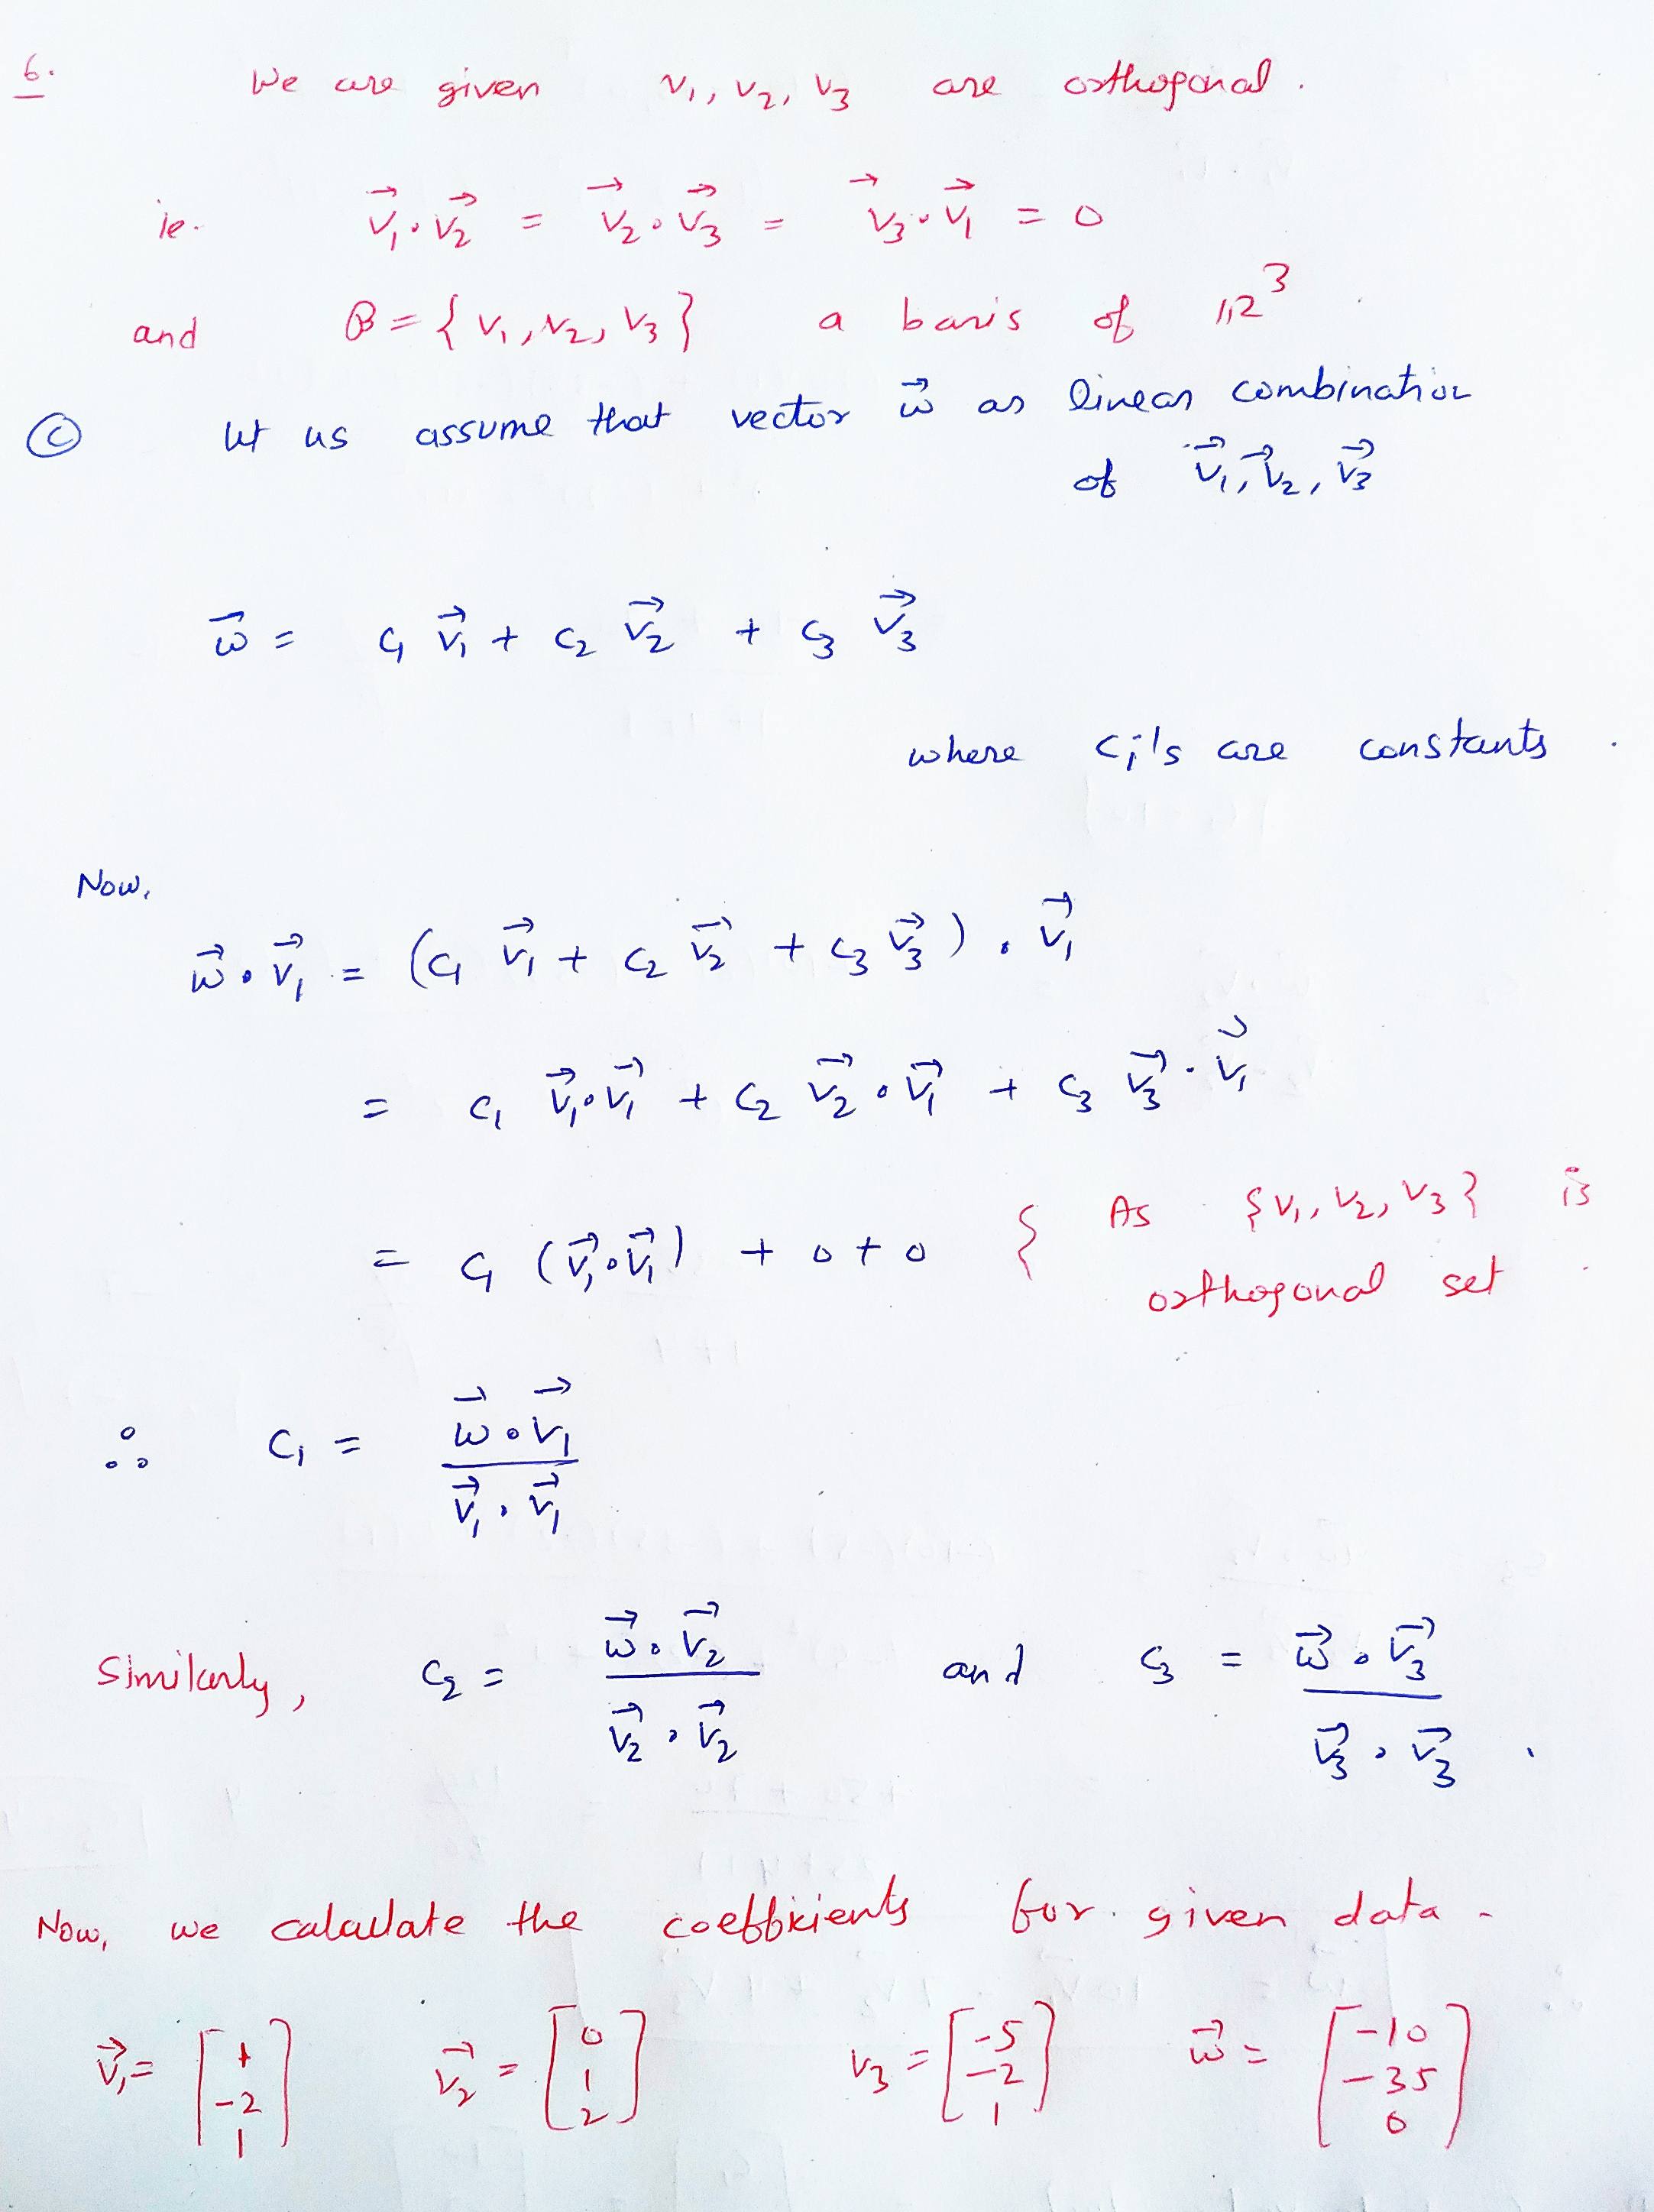 6. We are given v₁, v₂, v₃ are orthogonal.
ie. v⃗₁∘v⃗₂ = v⃗₂∘v⃗₃ = v⃗₃∘v⃗₁ = 0
and B = {v₁, v₂, v₃} a basis of ℝ³.
Ⓒ let us assume that vector w⃗ as linear combination
of v⃗₁, v⃗₂, v⃗₃
w⃗ = c₁ v⃗₁ + c₂ v⃗₂ + c₃ v⃗₃
where cᵢ's are constants.
Now,
w⃗∘v⃗₁ = (c₁ v⃗₁ + c₂ v⃗₂ + c₃ v⃗₃) ∘ v⃗₁
= c₁ v⃗₁∘v⃗₁ + c₂ v⃗₂∘v⃗₁ + c₃ v⃗₃∘v⃗₁
= c₁ (v⃗₁∘v⃗₁) + 0 + 0 { As {v₁, v₂, v₃} is
orthogonal set.
∴ c₁ = (w⃗∘v⃗₁)/(v⃗₁∘v⃗₁)
Similarly, c₂ = (w⃗∘v⃗₂)/(v⃗₂∘v⃗₂) and c₃ = (w⃗∘v⃗₃)/(v⃗₃∘v⃗₃).
Now, we calculate the coefficients for given data -
v⃗₁ = [1 -2 1] v⃗₂ = [0 1 2] v₃ = [-5 -2 1] w⃗ = [-10 -35 0]